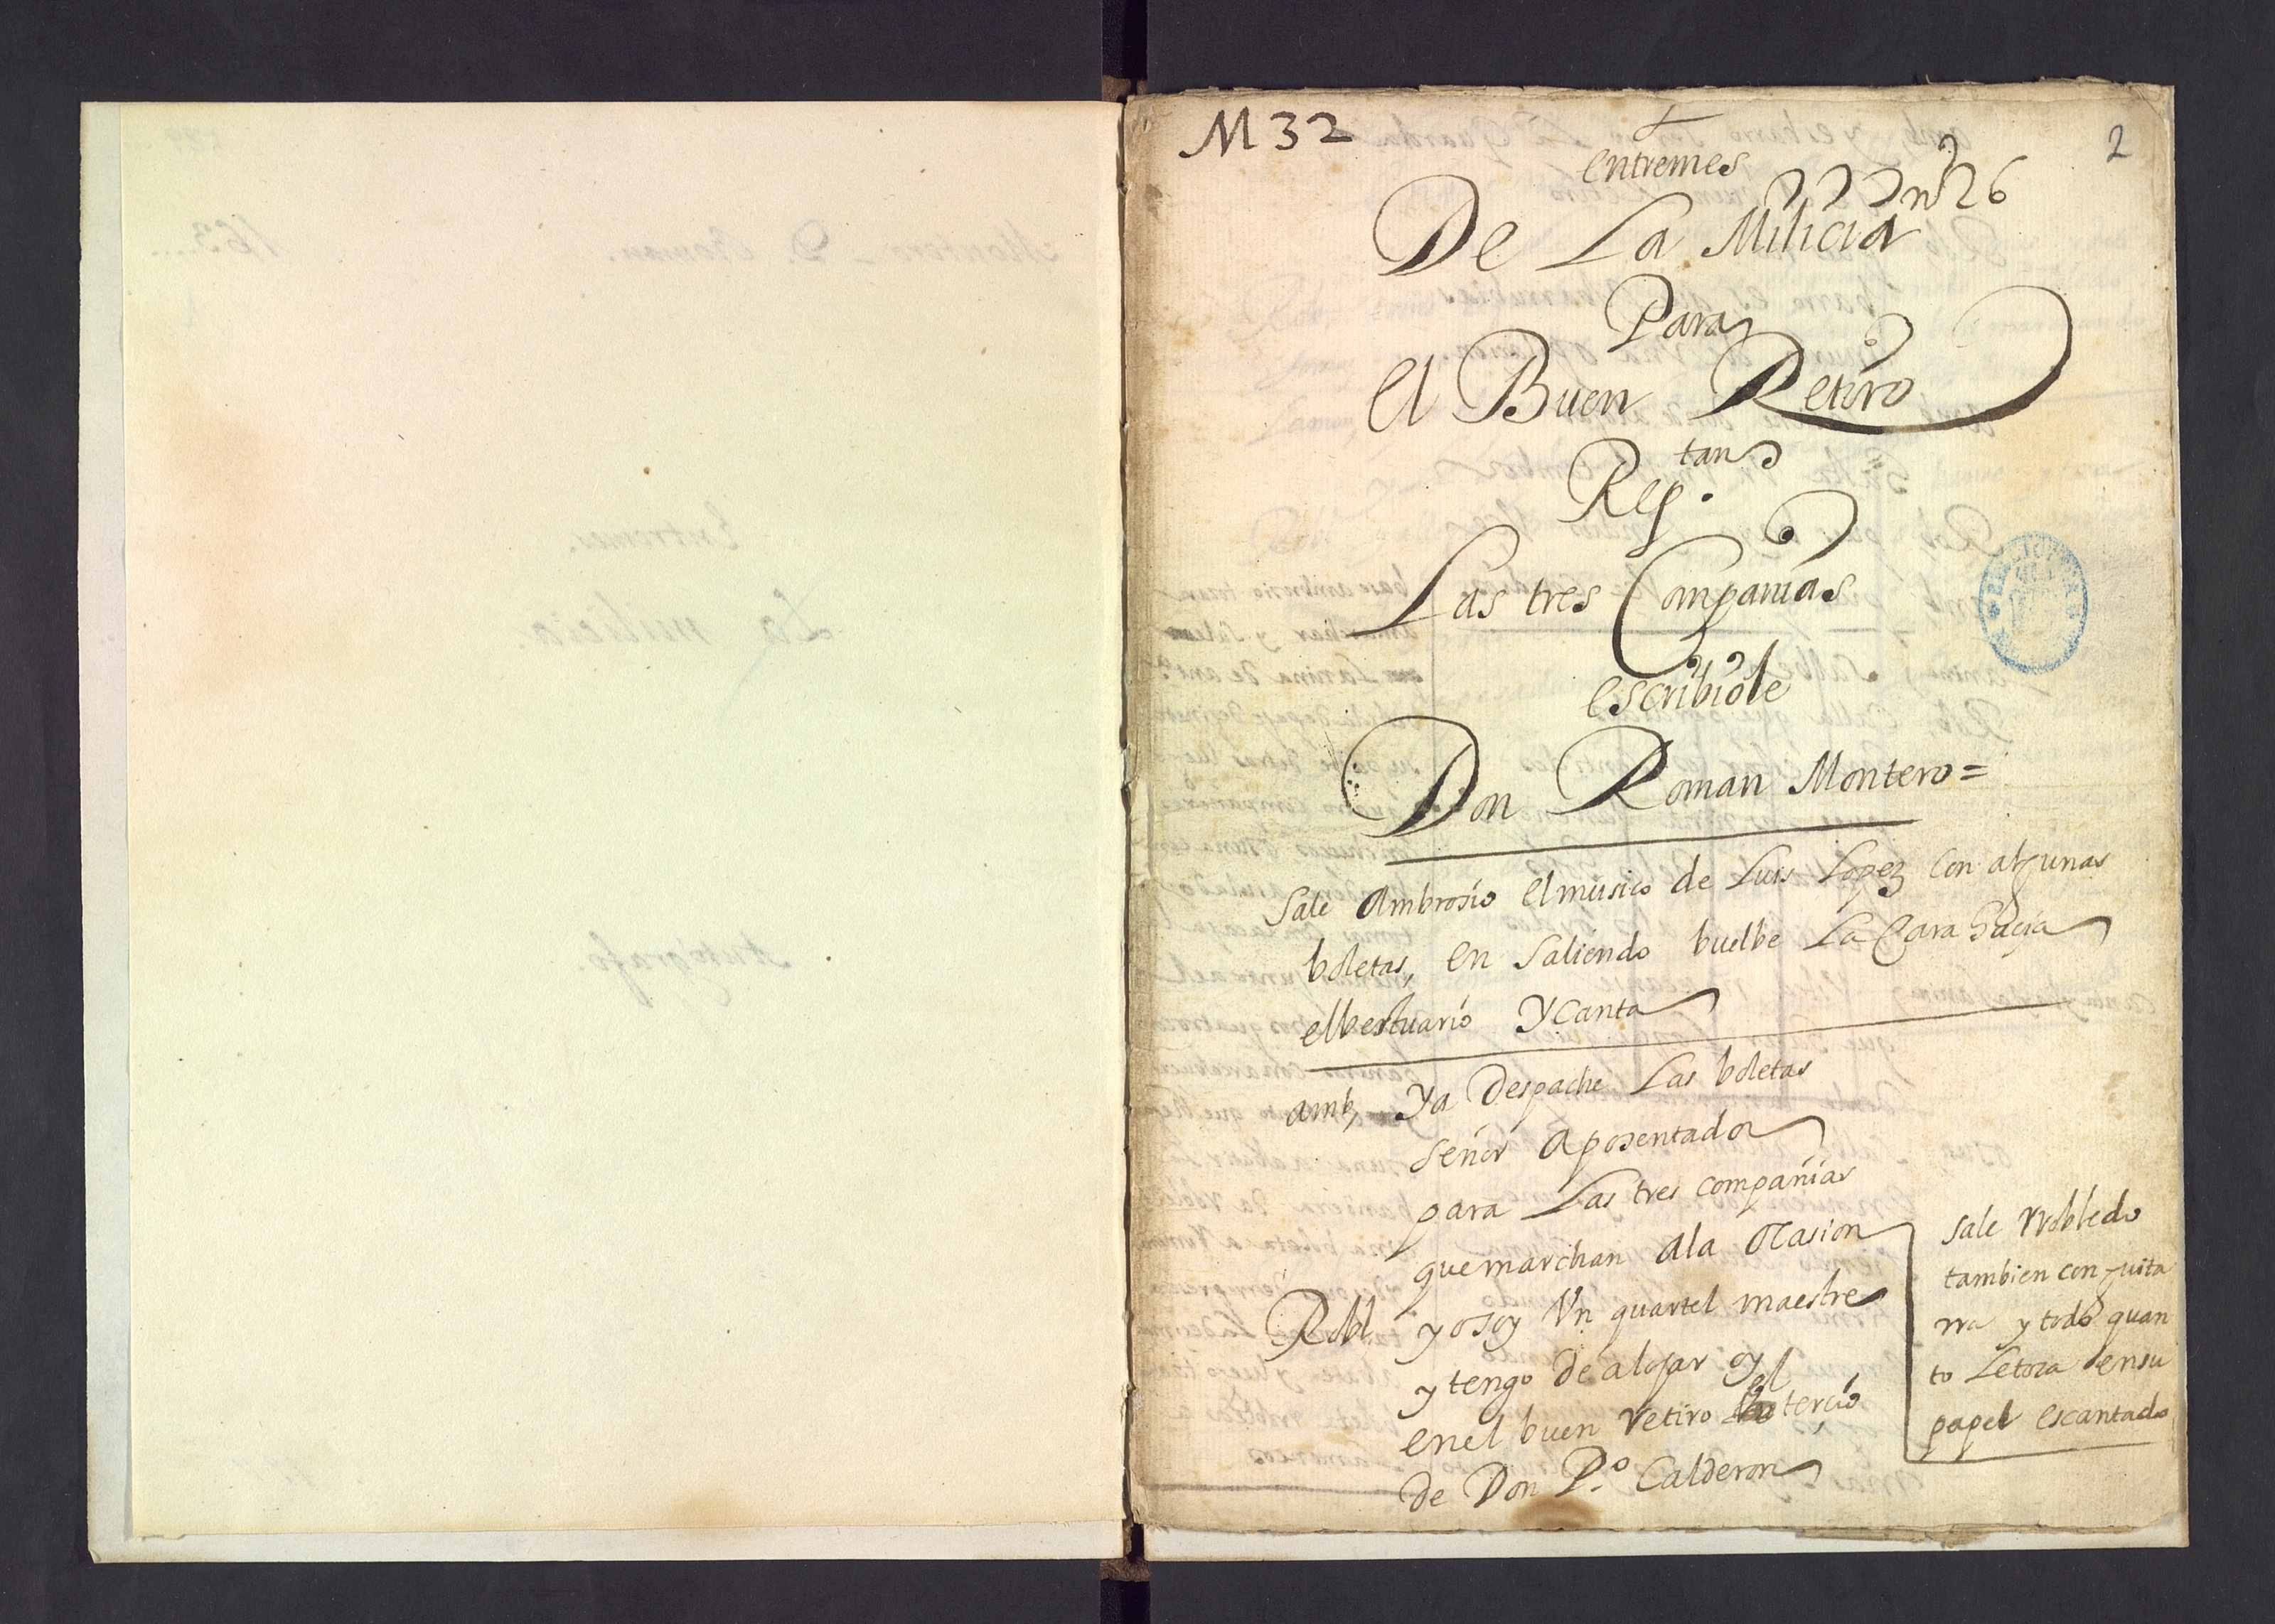 M 32
2
entremes
nº 26
De La Milicia
Para
el Buen Retiro
Rep.tan
Las tres Compañias
escribiole
Don Roman Montero =
Sale Ambrosio el musico de Luis Lopez con algunas
boletas, en saliendo buelbe La Cara hacia
el bestuario y canta
amb, Ya Despache Las boletas
señor aposentador
para Las tres compañias
que marchan a la ocasion
Robl yo soy Un quartel maestre
y tengo de alojar oy
en el buen retiro el tercio
de Don P.º Calderon
sale rrobledo
tambien con guita
rra y todo quan
to le toca en su
papel es cantado